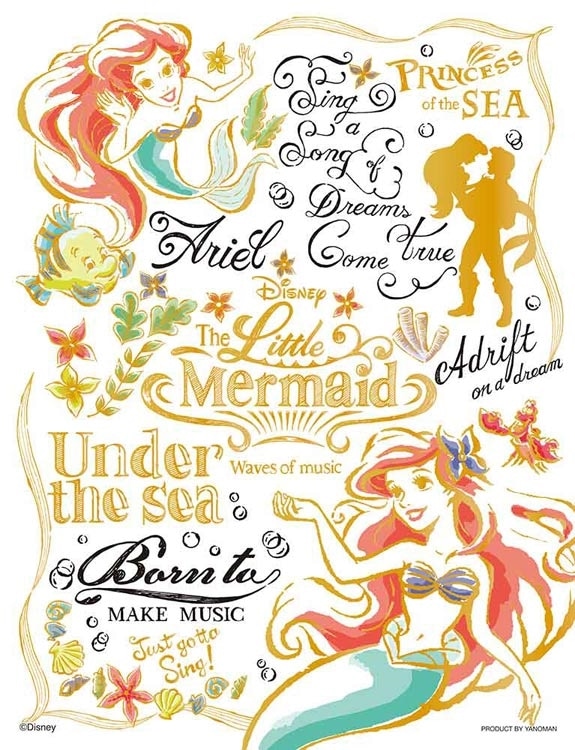 Sing
a
Song of
Dreams
Come true
PRINCESS
of the SEA
Ariel
DISNEY
The Little
Mermaid
Adrift
on a dream
Under
the sea
Waves of music
Born to
MAKE MUSIC
Just gotta
Sing!
©Disney
PRODUCT BY YANOMAN